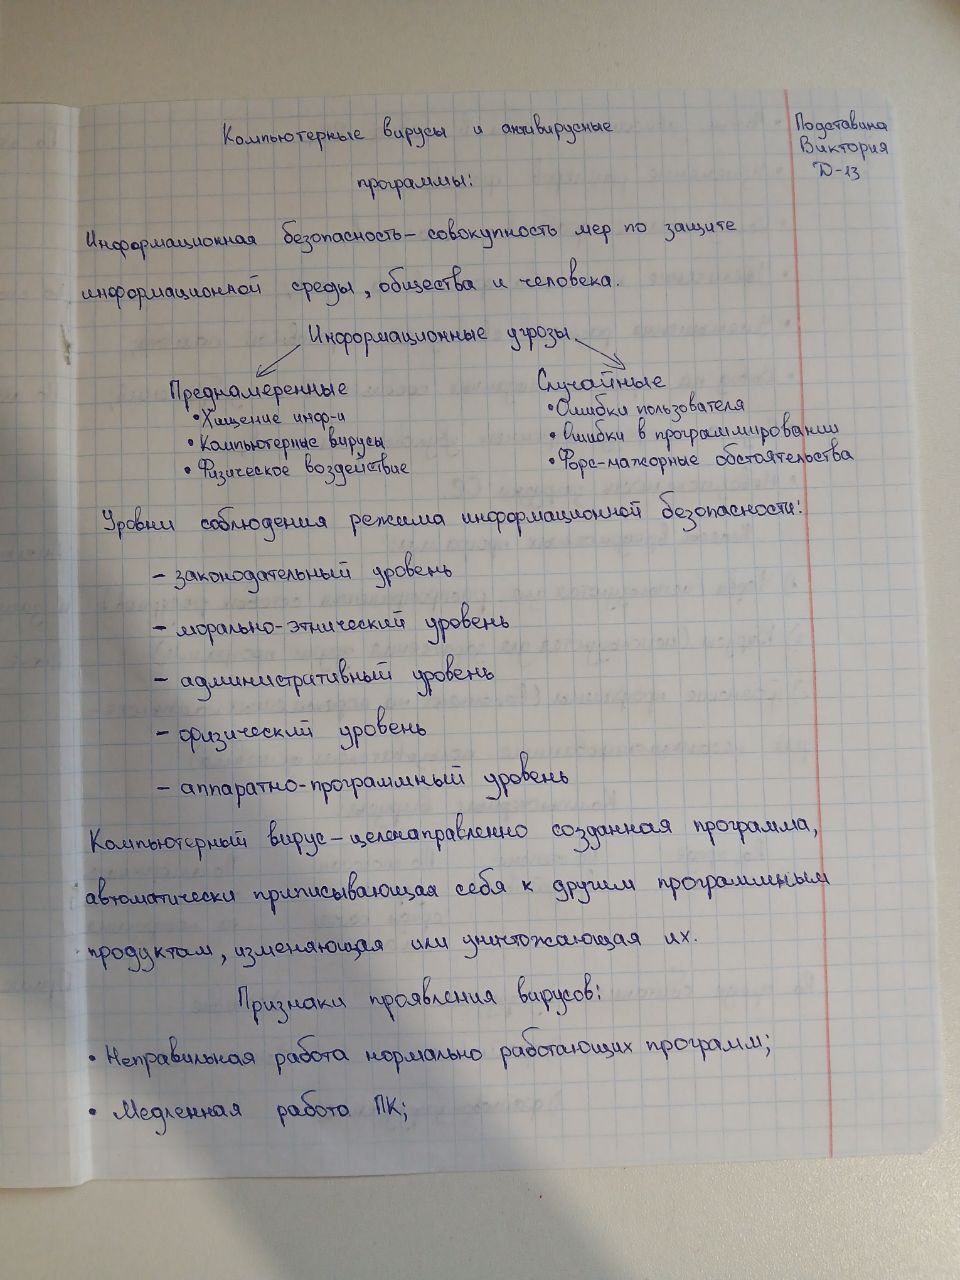 Компьютерные вирусы и антивирусные
программы:
Подставина
Виктория
Д-13
Информационная безопасность – совокупность мер по защите
информационной среды, общества и человека.
Информационные угрозы
Преднамеренные
• Хищение инф-и
• Компьютерные вирусы
• Физическое воздействие
Случайные
• Ошибки пользователя
• Ошибки в программировании
• Форс-мажорные обстоятельства
Уровни соблюдения режима информационной безопасности:
– законодательный уровень
– морально-этнический уровень
– административный уровень
– физический уровень
– аппаратно-программный уровень
Компьютерный вирус – целенаправленно созданная программа,
автоматически приписывающая себя к другим программным
продуктам, изменяющая или уничтожающая их.
Признаки проявления вирусов:
• Неправильная работа нормально работающих программ;
• Медленная работа ПК;